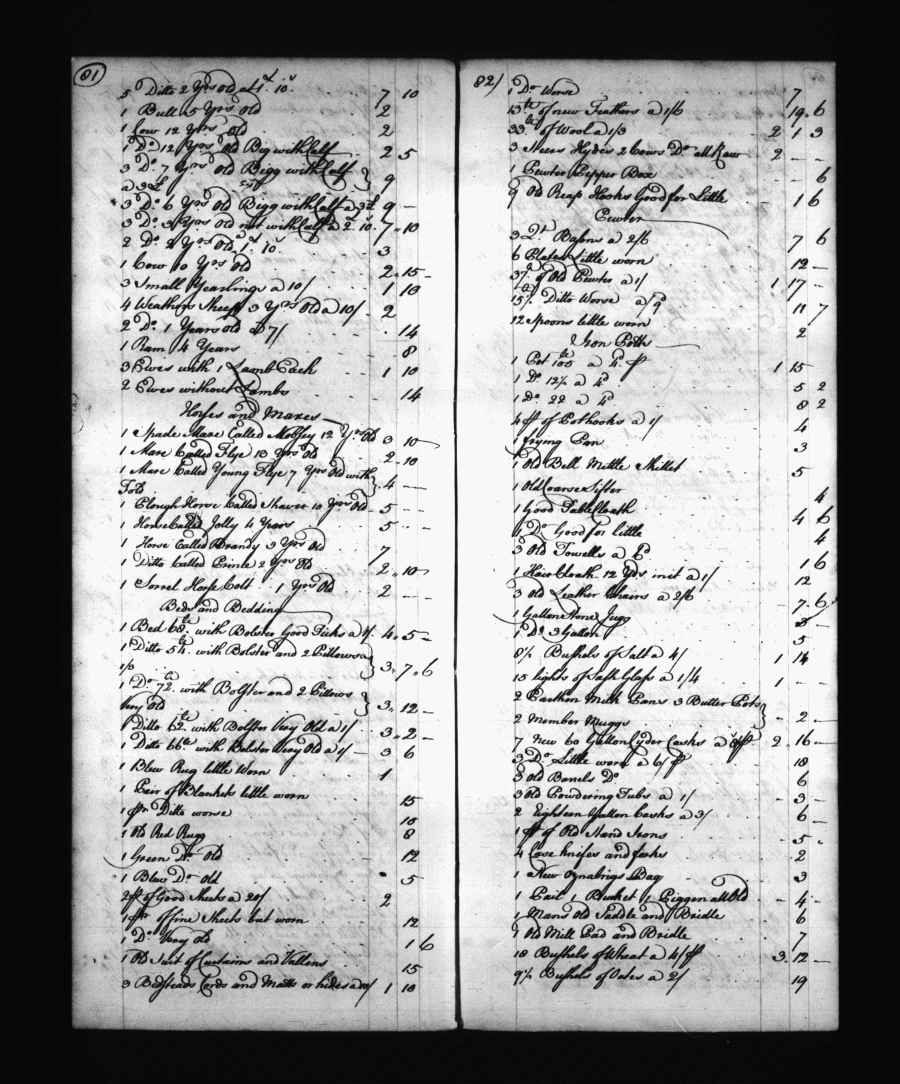 81
5 Ditto 2 Yrs Old a £1. 10s 7 10
1 Bull 5 Yrs Old 2
1 Cow 12 Yrs Old 2
1 Do 12 Yrs Old Big with Calf 2 5
3 Do 7 Yrs Old Bigg with Calf
a 3£ 9
3 Do 6 Yrs Old Bigg with Calf a 3£ 9 —
3 Do 3 Yrs Old not with Calf a 2. 10s 7 .. 10
2 Do 2 Yrs Old 1. 10. 3
1 Cow 10 Yrs Old 2 .. 15 -
3 Small Yearlings a 10/ 1 10
4 Weathers Sheep 3 Yrs Old a 10/ 2
2 Do 1 Years Old a 7/ 14
1 Ram 4 Years 8
3 Ewes with 1 Lamb Each 1 10
2 Ewes without Lambs 14
Horses and Mares
1 Spade Mare Called Mobsey 12 Yrs Old 3 10
1 Mare Called Flye 13 Yrs Old 2 .. 10
1 Mare Called Young Flye 7 Yrs Old with
Fold 4 —
1 Plough Horse Called Shaver 10 Yrs Old 5 —
1 Horse Called Jolly 4 Years 5 -
1 Horse Called Brandy 3 Yrs Old 7
1 Ditto Called Prince 2 Yrs Old 2 .. 10
1 Sorrel Horse Colt 1 Yrs Old 2 —
Beds and Bedding
1 Bed 68lb with Bolster Good Ticks a 4. 5 -
1 Ditto 54lb with Bolster and 2 Pillows a
1/3 3 .. 7 .. 6
1 Do 72lb with Bolster and 2 Pillows
Very Old 3 .. 12 -
1 Ditto 62lb with Bolster Very Old a 1/ 3 .. 2 -
1 Ditto 66lb with Bolster Very Old a 1/ 3 6
1 Blew Rug little Worn 1
1 Pair of Blankets little worn 15
1 pr Ditto worse 10
1 Old Red Rugg 8
1 Green Do Old 12
1 Blew Do Old 5
2 pr of Good Sheets a 20/ 2
1 pr of fine Sheets but worn 12
1 Do Very Old 1 6
1 Old Suit of Curtains and Vallens 15
3 Bedsteads Cords and Matts or hides a 10/ 1 10
82/
1 Do Worse 7
13lb of new Feathers a 1/6 19 .. 6
33lb of Wool a 1/3 2 1 3
3 Steers Hydes 2 Cows Do all Raw 2 - -
1 Pewter Pepper Box - 6
9 Old Reap Hooks Good for Little 1 6
Pewter
3 2qt Basons a 2/6 7 6
6 Plates Little worn 12 -
37lb of Old Pewter a 1/ 1 17 -
15½ Ditto Worse a /9 11 7
12 Spoons little worn 2
Iron Potts
1 Pot 105lb a 4d p 1 15
1 Do 12½ a 4d 5 2
1 Do 22 a 4d 8 2
4 pr of Pothooks a 1/ 4
1 frying Pan 3
1 Old Bell Mettle Skillet 5
1 Old Coarse Sifter 4
1 Good Table Cloath 4 6
1 Do Good for little 4
3 Old Towells a 6d 1 6
1 Hair Cloath 12 Yds in it a 1/ 12
3 old Leather Chairs a 2/6 7 .. 6
1 Gallon Stone Jugg
1 Do 3 Gallon 5
8½ Bushels of Salt a 4/ 1 14
15 lights of Sash Glass a 1/4 1 - -
2 Earthen Milk Pans 3 Butter Pots
2 Muggs - 2 -
7 New 60 Gallon Cyder Casks a 8/ p 2 .. 16 -
3 Do Little worn a 6/ p 18
3 Old Barrels Do 6
3 Old Powdering Tubs a 1/ - 3 -
2 Eighteen Gallon Casks a 3/ 6 -
1 pr of Old Hand Irons 5
4 Case knifes and forks 2
1 New Oznabrigs Bag 3
1 Pail 1 Bucket 1 Piggen all Old - 4 -
1 Mans Old Saddle and Bridle 6
1 Old Mill Pad and Bridle 7
18 Bushels of Wheat a 4/ p 3 .. 12 -
9½ Bushels of Oates a 2/ 19